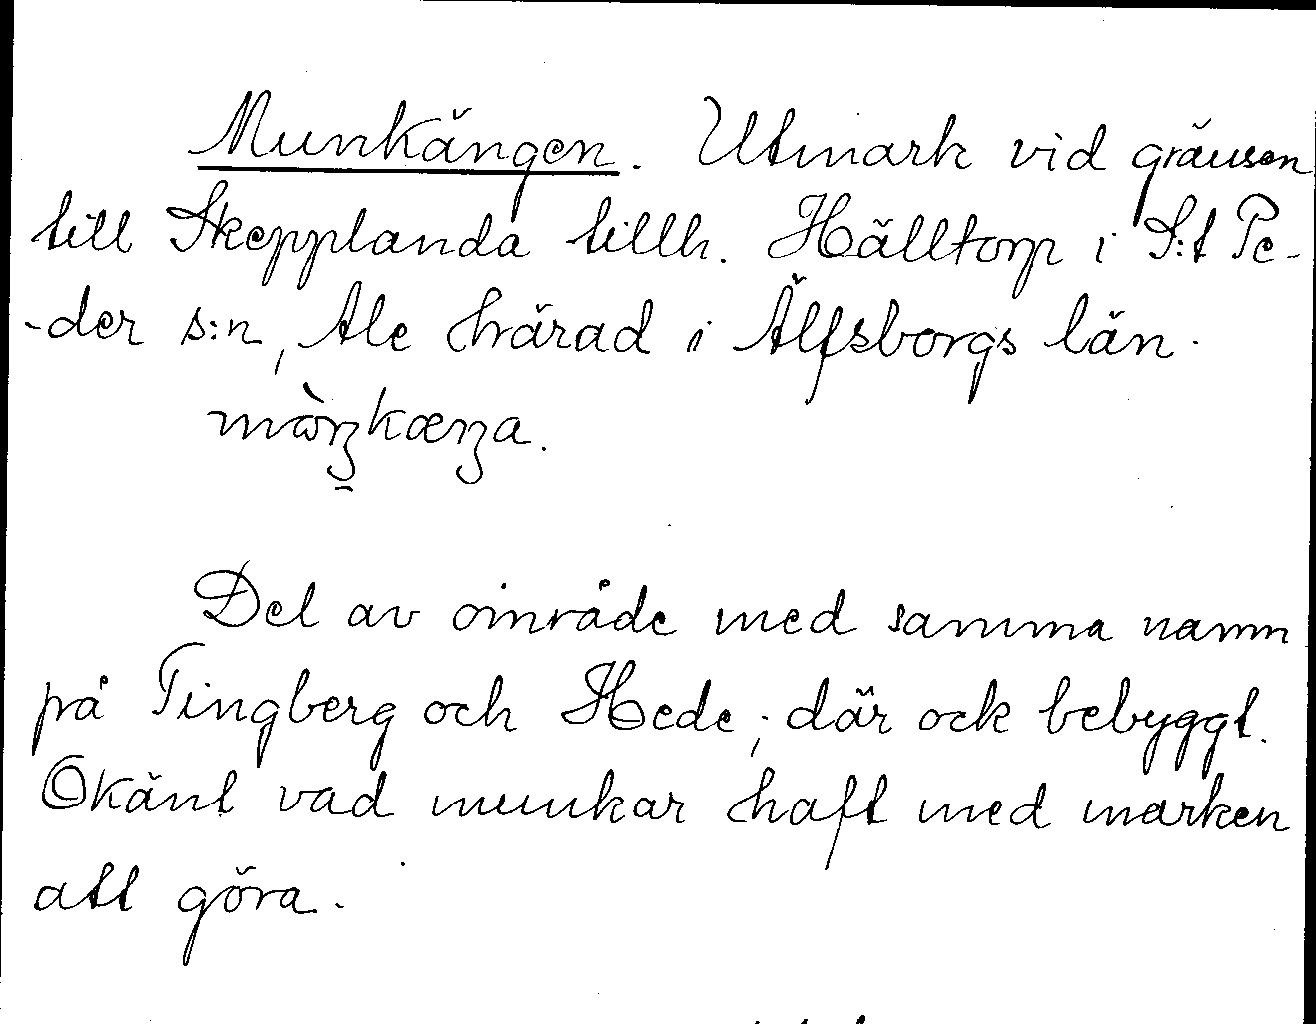 Munkängen. Utmark vid gränsen
till Skepplanda tillh. Hälltorp i S:t Pe-
-der s:n, Ale härad i Älfsborgs län.
màŋkæŋa.
Del av område med samma namn
på Tingberg och Hede; där ock bebyggt.
Okänt vad munkar haft med marken
att göra.